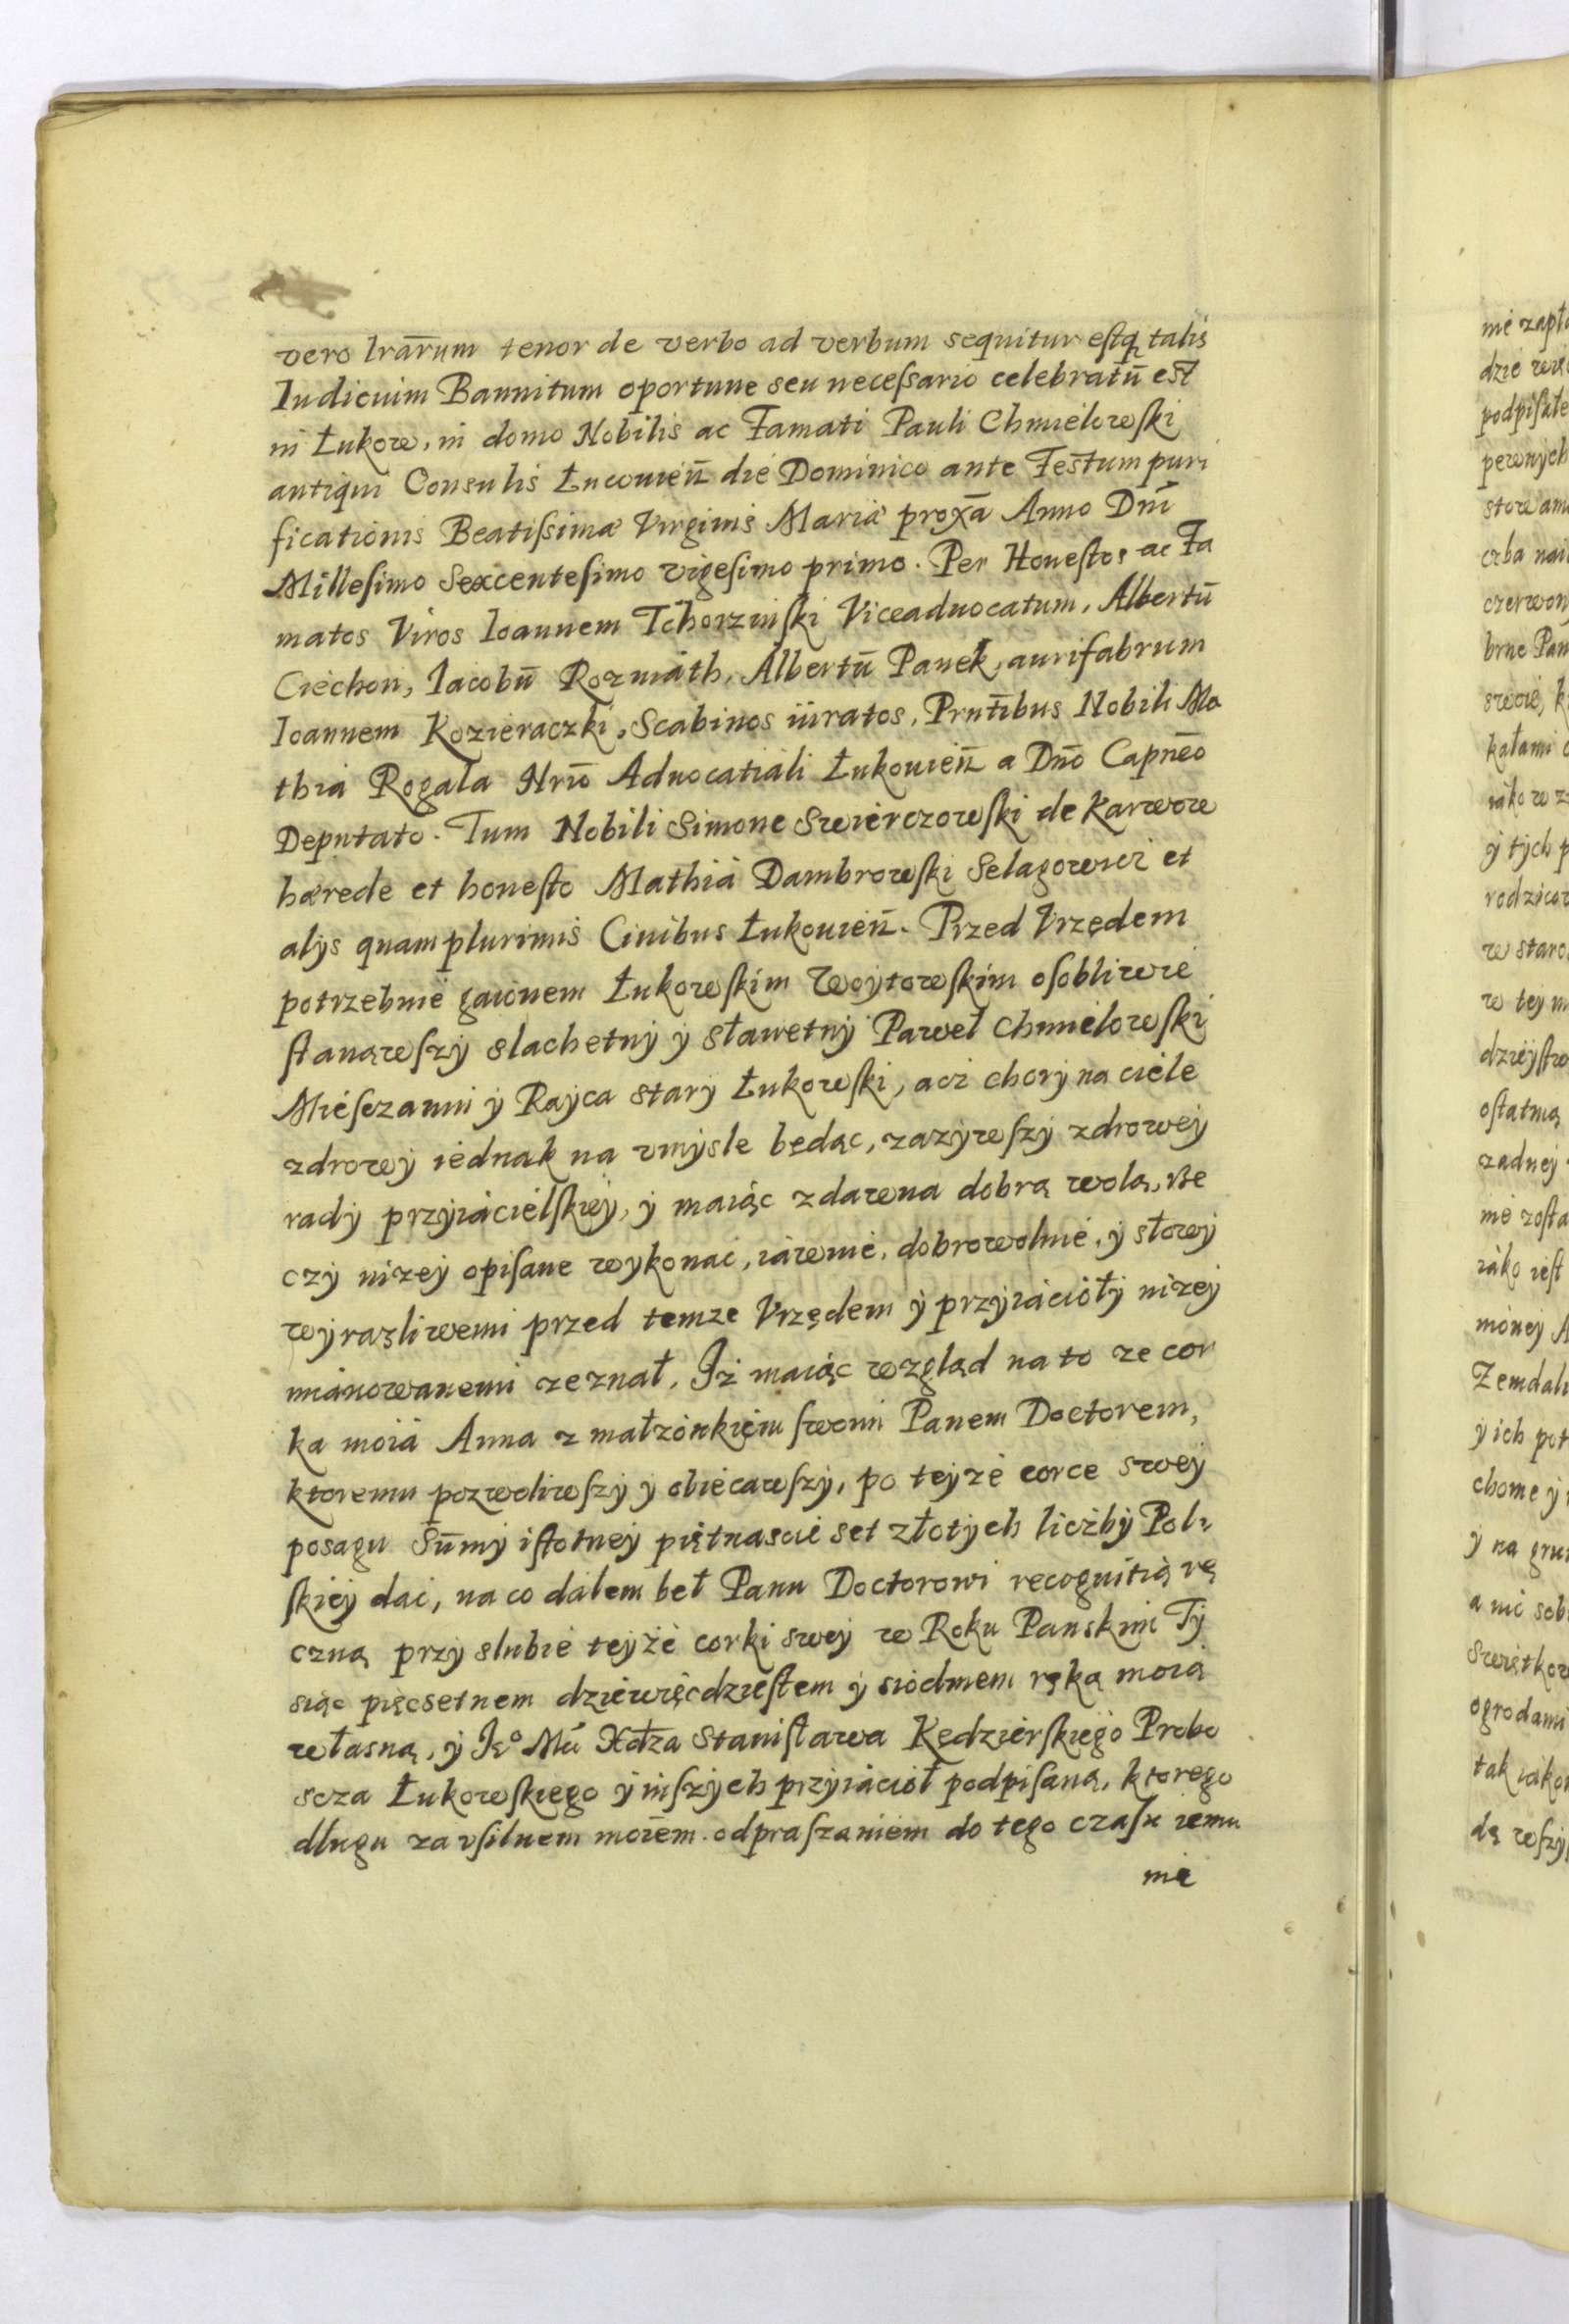 vero lrārum tenor de verbo ad verbum sequitur estq talis
Iudicium Bannitum oportune seu necessario celebratū est
in Łukow, in domo Nobilis ac Famati Pauli Chmielowski
antiqui Consulis Łucovień die Dominico ante Festum puri
ficationis Beatissimæ Virginis Mariæ proxā Anno Dnī
Millesimo Sexcentesimo vigesimo primo. Per Honestos ac Fa
matos Viros Ioannem Tchorzniski Viceaduocatum, Albertū
Ciechon, Iacobū Rozmath, Albertū Panek, aurifabrum
Ioannem Kozieraczki, Scabinos iuratos, Prntībus Nobili Ma
thia Rogala Nrīo Aduocatiali Łukouień a Dnō Capnēo
Deputato. Tum Nobili Simone Swierczowski de Karwow
hærede et honesto Mathia Dambrowski Selagowici et
alys quam plurimis Ciuibus Łukouień. Przed Vrzędem
potrzebnie gaionem Łukowskim Woytowskim osobliwie
stanąwszy slachetny y sławetny Paweł Chmielowski
Miesczanin y Rayca stary Łukowski, aci chory na ciele
zdrowy iednak na vmysle będąc, zazywszy zdrowey
rady przyiacielskiey, y maiąc zdawna dobrą wolą, Rze
czy nizey opisane wykonac, iawnie, dobrowolnie, y słowy
wyrazliwemi przed temze Vrzędem y przyiacioły nizey
mianowanemi zeznał. Iż maiąc wzgląd na to ze cor
ka moia Anna z małzonkięm swoim Panem Doctorem,
ktoremu pozwoliwszy y obiecawszy, po teyze corce swey
posagu Sūmy istotney piętnascie set złotych liczby Pol-
skiey dac, na co dałem beł Panu Doctorowi recognitią rę
czną przy slubie teyże corki swey w Roku Panskim Ty
siąc pięcsetnem dziewięcdziestem y siodmem ręką moią
własną, y Ieº Mci Xdza Stanisława Kędzierskiego Probo
scza Łukowskiego y inszych przyiacioł podpisaną, ktorego
długu za vsilnem moiem odpraszaniem do tego czasu iemu
nie